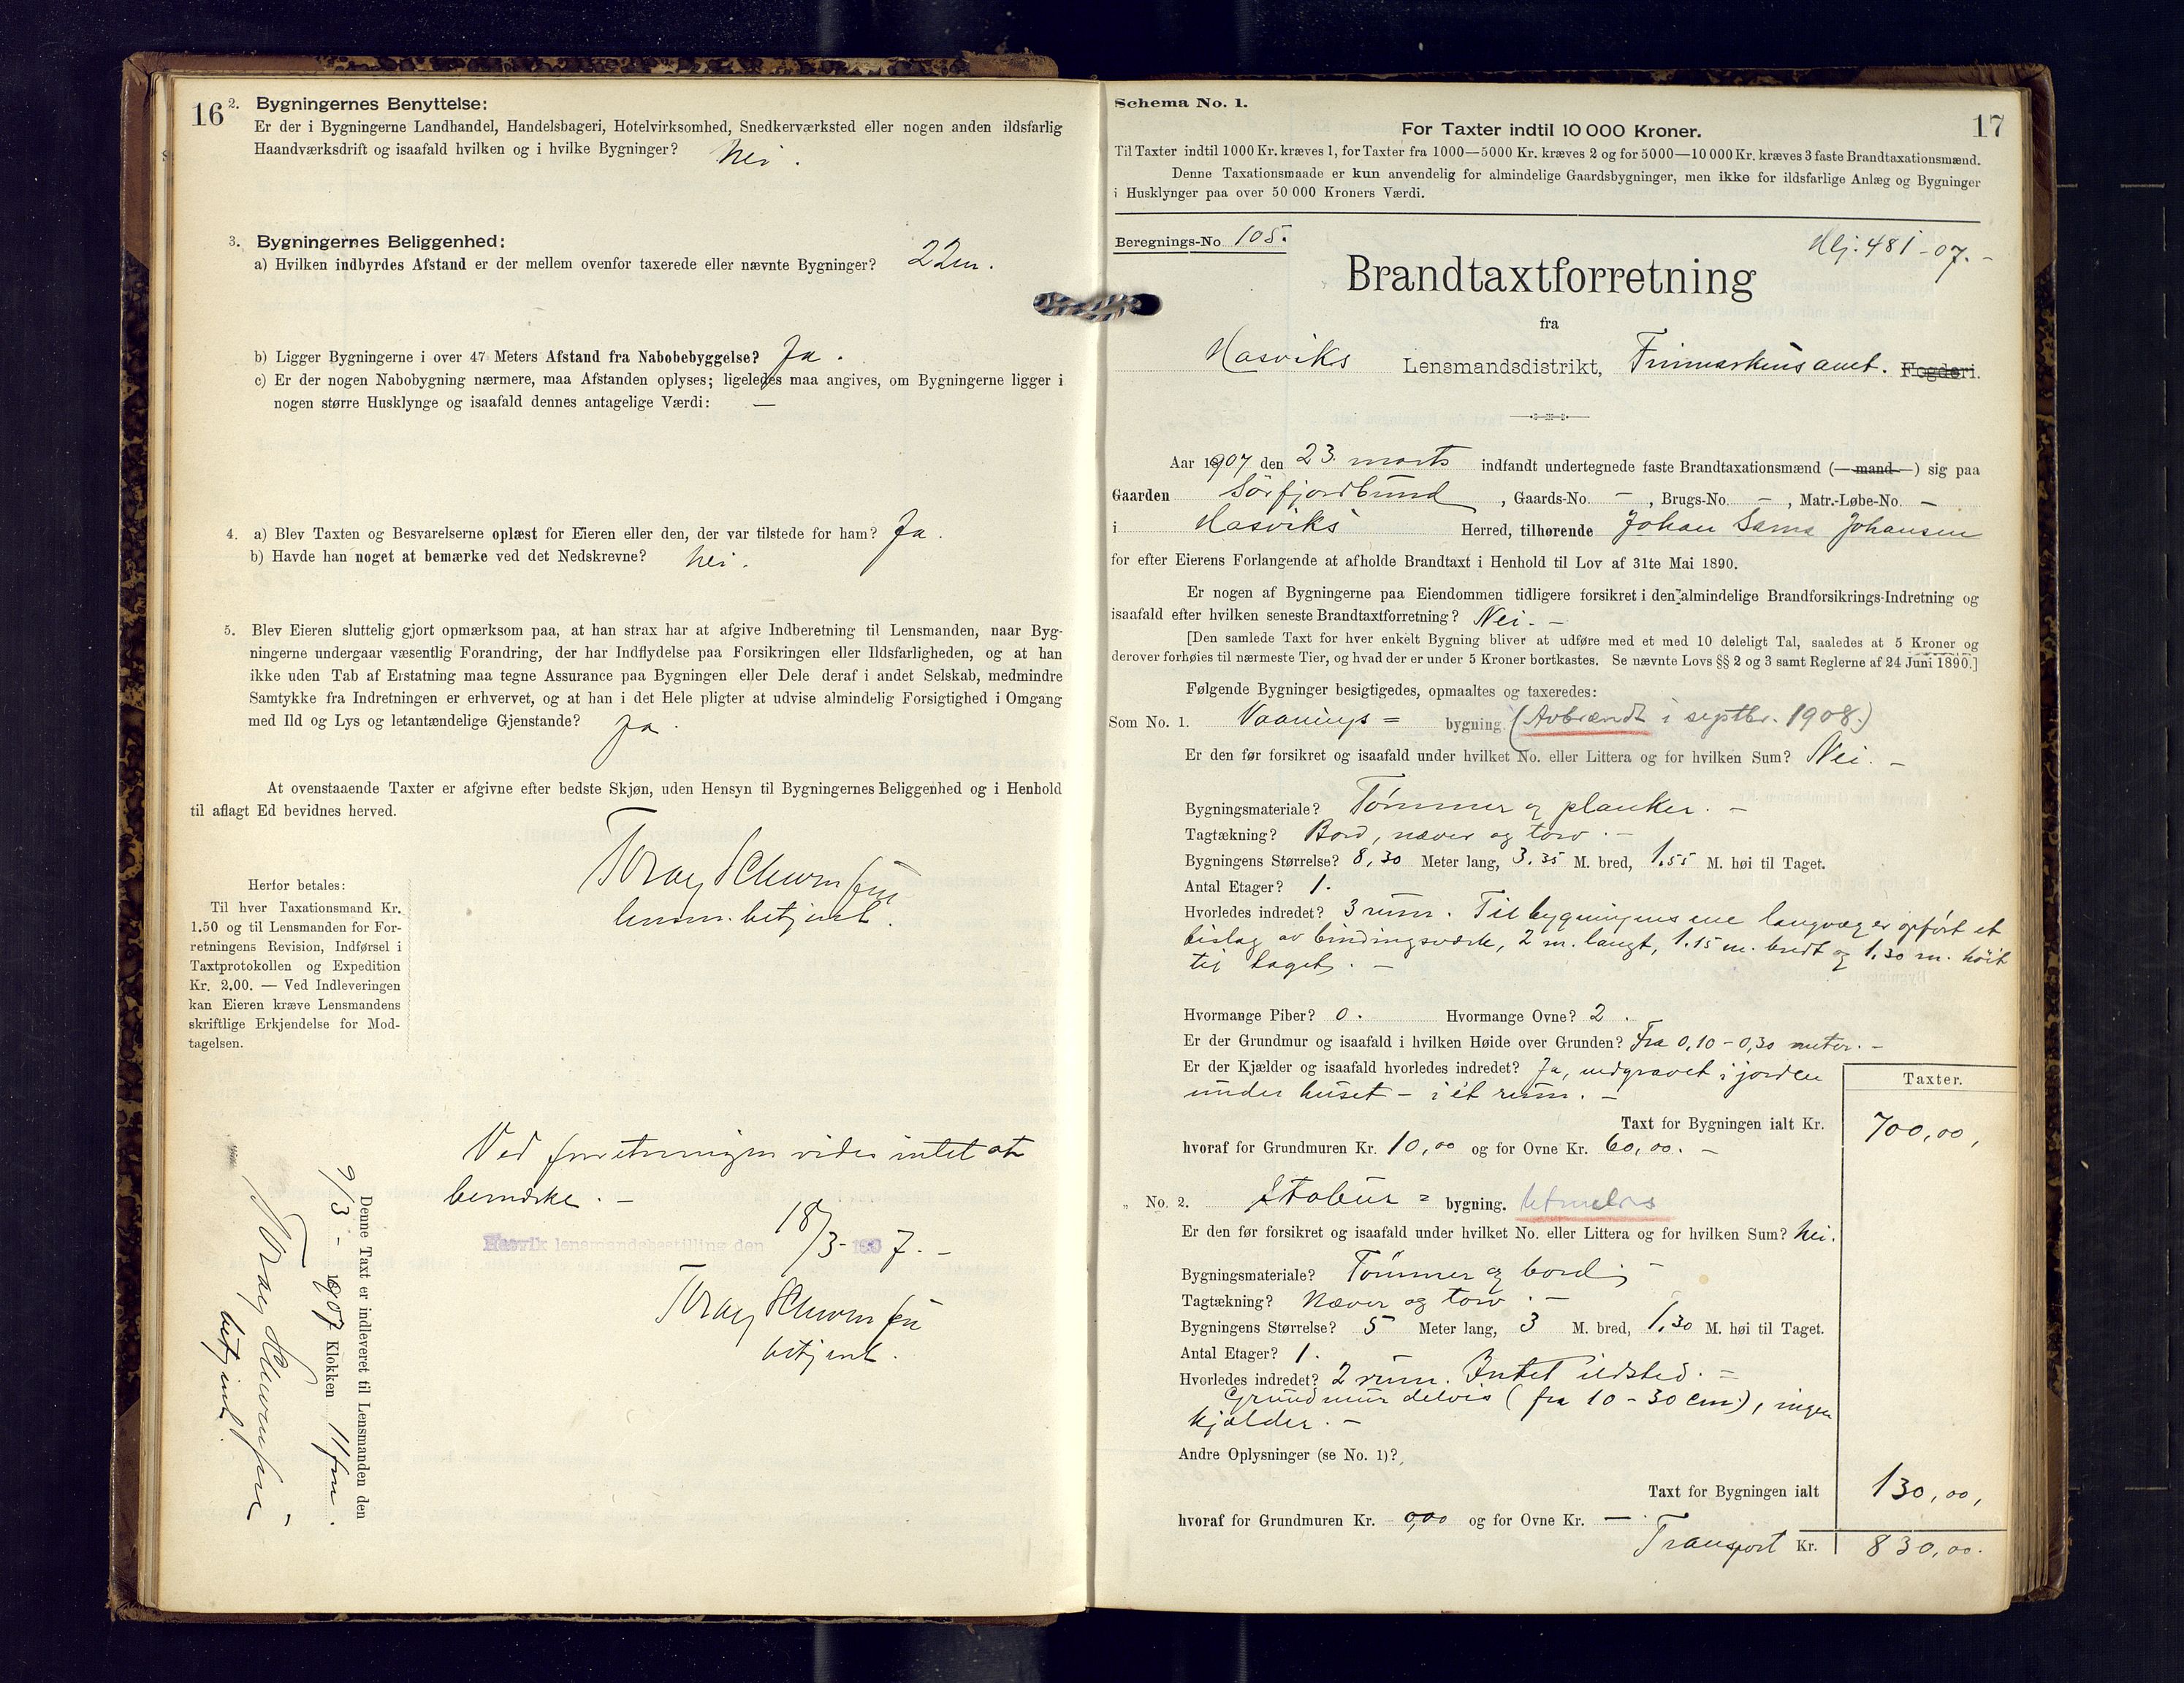 16
2. Bygningernes Benyttelse:
Er der i Bygningerne Landhandel, Handelsbageri, Hotelvirksomhed, Snedkerværksted eller nogen anden ildsfarlig
Haandværksdrift og isaafald hvilken og i hvilke Bygninger? Nei.
3. Bygningernes Beliggenhed:
a) Hvilken indbyrdes Afstand er der mellem ovenfor taxerede eller nævnte Bygninger? 22m.
b) Ligger Bygningerne i over 47 Meters Afstand fra Nabobebyggelse? Ja.
c) Er der nogen Nabobygning nærmere, maa Afstanden oplyses; ligeledes maa angives, om Bygningerne ligger i
nogen større Husklynge og isaafald dennes antagelige Værdi: —
4. a) Blev Taxten og Besvarelserne oplæst for Eieren eller den, der var tilstede for ham? Ja.
b) Havde han noget at bemærke ved det Nedskrevne? Nei.
5. Blev Eieren sluttelig gjort opmærksom paa, at han strax har at afgive Indberetning til Lensmanden, naar Byg-
ningerne undergaar væsentlig Forandring, der har Indflydelse paa Forsikringen eller Ildsfarligheden, og at han
ikke uden Tab af Erstatning maa tegne Assurance paa Bygningen eller Dele deraf i andet Selskab, medmindre
Samtykke fra Indretningen er erhvervet, og at han i det Hele pligter at udvise almindelig Forsigtighed i Omgang
med Ild og Lys og letantændelige Gjenstande? Ja.
At ovenstaaende Taxter er afgivne efter bedste Skjøn, uden Hensyn til Bygningernes Beliggenhed og i Henhold
til aflagt Ed bevidnes herved.
lensm. betjent.
Herfor betales:
Til hver Taxationsmand Kr.
1.50 og til Lensmanden for For-
retningens Revision, Indførsel i
Taxtprotokollen og Expedition
Kr. 2.00. — Ved Indleveringen
kan Eieren kræve Lensmandens
skriftlige Erkjendelse for Mod-
tagelsen.
Ved forretningen vides intet at
bemærke. —
Hasvik lensmandsbestilling den 18/3 - 1907. —
betjent.
Denne Taxt er indleveret til Lensmanden den
9/3 - 1907 Klokken 11 fm.
betjent.
Schema No. 1.
17
For Taxter indtil 10 000 Kroner.
Til Taxter indtil 1000 Kr. kræves 1, for Taxter fra 1000—5000 Kr. kræves 2 og for 5000—10 000 Kr. kræves 3 faste Brandtaxationsmænd.
Denne Taxationsmaade er kun anvendelig for almindelige Gaardsbygninger, men ikke for ildsfarlige Anlæg og Bygninger
i Husklynger paa over 50 000 Kroners Værdi.
Beregnings-No 105.
Nlj. 481-07. -
Brandtaxtforretning
fra
Hasviks Lensmandsdistrikt, Finmarkens amt. Fogderi.
Aar 1907 den 23. marts indfandt undertegnede faste Brandtaxationsmænd (—mand—) sig paa
Gaarden Sörfjordbund, Gaards-No. —, Brugs-No. —, Matr.-Løbe-No. —
i Hasviks Herred, tilhørende Johan Johansen
for efter Eierens Forlangende at afholde Brandtaxt i Henhold til Lov af 31te Mai 1890.
Er nogen af Bygningerne paa Eiendommen tidligere forsikret i den almindelige Brandforsikrings-Indretning og
isaafald efter hvilken seneste Brandtaxtforretning? Nei. —
[Den samlede Taxt for hver enkelt Bygning bliver at udføre med et med 10 deleligt Tal, saaledes at 5 Kroner og
derover forhøies til nærmeste Tier, og hvad der er under 5 Kroner bortkastes. Se nævnte Lovs §§ 2 og 3 samt Reglerne af 24 Juni 1890.]
Følgende Bygninger besigtigedes, opmaaltes og taxeredes:
Som No. 1. Vaanings = bygning (Avbrændt i septbr. 1908.)
Er den før forsikret og isaafald under hvilket No. eller Littera og for hvilken Sum? Nei. —
Bygningsmateriale? Tömmer og planker. —
Tagtækning? Bord, næver og torv. —
Bygningens Størrelse? 8,30 Meter lang, 3.35 M. bred, 1.55 M. høi til Taget.
Antal Etager? 1.
Hvorledes indredet? 3 rum. Til bygningens ene langvæg er opfört et
bislag av bindingsverk, 2 m. langt, 1.15 m. bredt og 1,30 m. höit
til taget. —
Hvormange Piber? 0. Hvormange Ovne? 2.
Er der Grundmur og isaafald i hvilken Høide over Grunden? Fra 0,10 - 0,30 meter. —
Er der Kjælder og isaafald hvorledes indredet? Ja, udgravet i jorden
under huset - i ét rum. —
Taxter.
Taxt for Bygningen ialt Kr. 700,00,
hvoraf for Grundmuren Kr. 10,00 og for Ovne Kr. 60,00. —
„ No. 2. Stabur = bygning. Utmeldes
Er den før forsikret og isaafald under hvilket No. eller Littera og for hvilken Sum? Nei.
Bygningsmateriale? Tömmer og bord; —
Tagtækning? Næver og torv. —
Bygningens Størrelse? 5 Meter lang, 3 M. bred, 1,30 M. høi til Taget.
Antal Etager? 1.
Hvorledes indredet? 2 rum. Intet ildsted. —
Grundmur delvis (fra 10 - 30 cm.), ingen
kjælder. —
Andre Oplysninger (se No. 1)?
Taxt for Bygningen ialt 130,00,
hvoraf for Grundmuren Kr. 0,00 og for Ovne Kr. —
Transport Kr. 830,00.